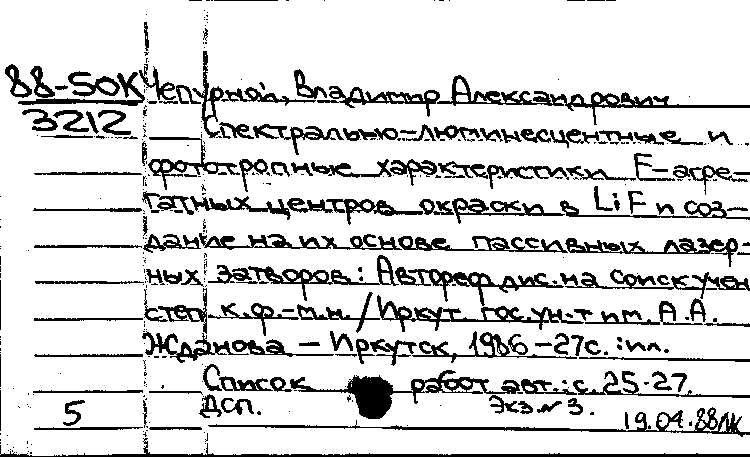 88-50К Чепурной, Владимир Александрович
3212 Спектрально-люминесцентные и
фототропные характеристики F-агре-
гатных центров окраски в LiF и соз-
дание на их основе пассивных лазер-
ных затворов: Автореф дис. на соиск учен
степ к.ф.-м.н. / Иркут. гос. ун-т им. А.А.
Жданова — Иркутск, 1986. - 27с. : ил.
Список работ авт.: с. 25-27.
5 ДСП. Экз. № 3. 19.04.88